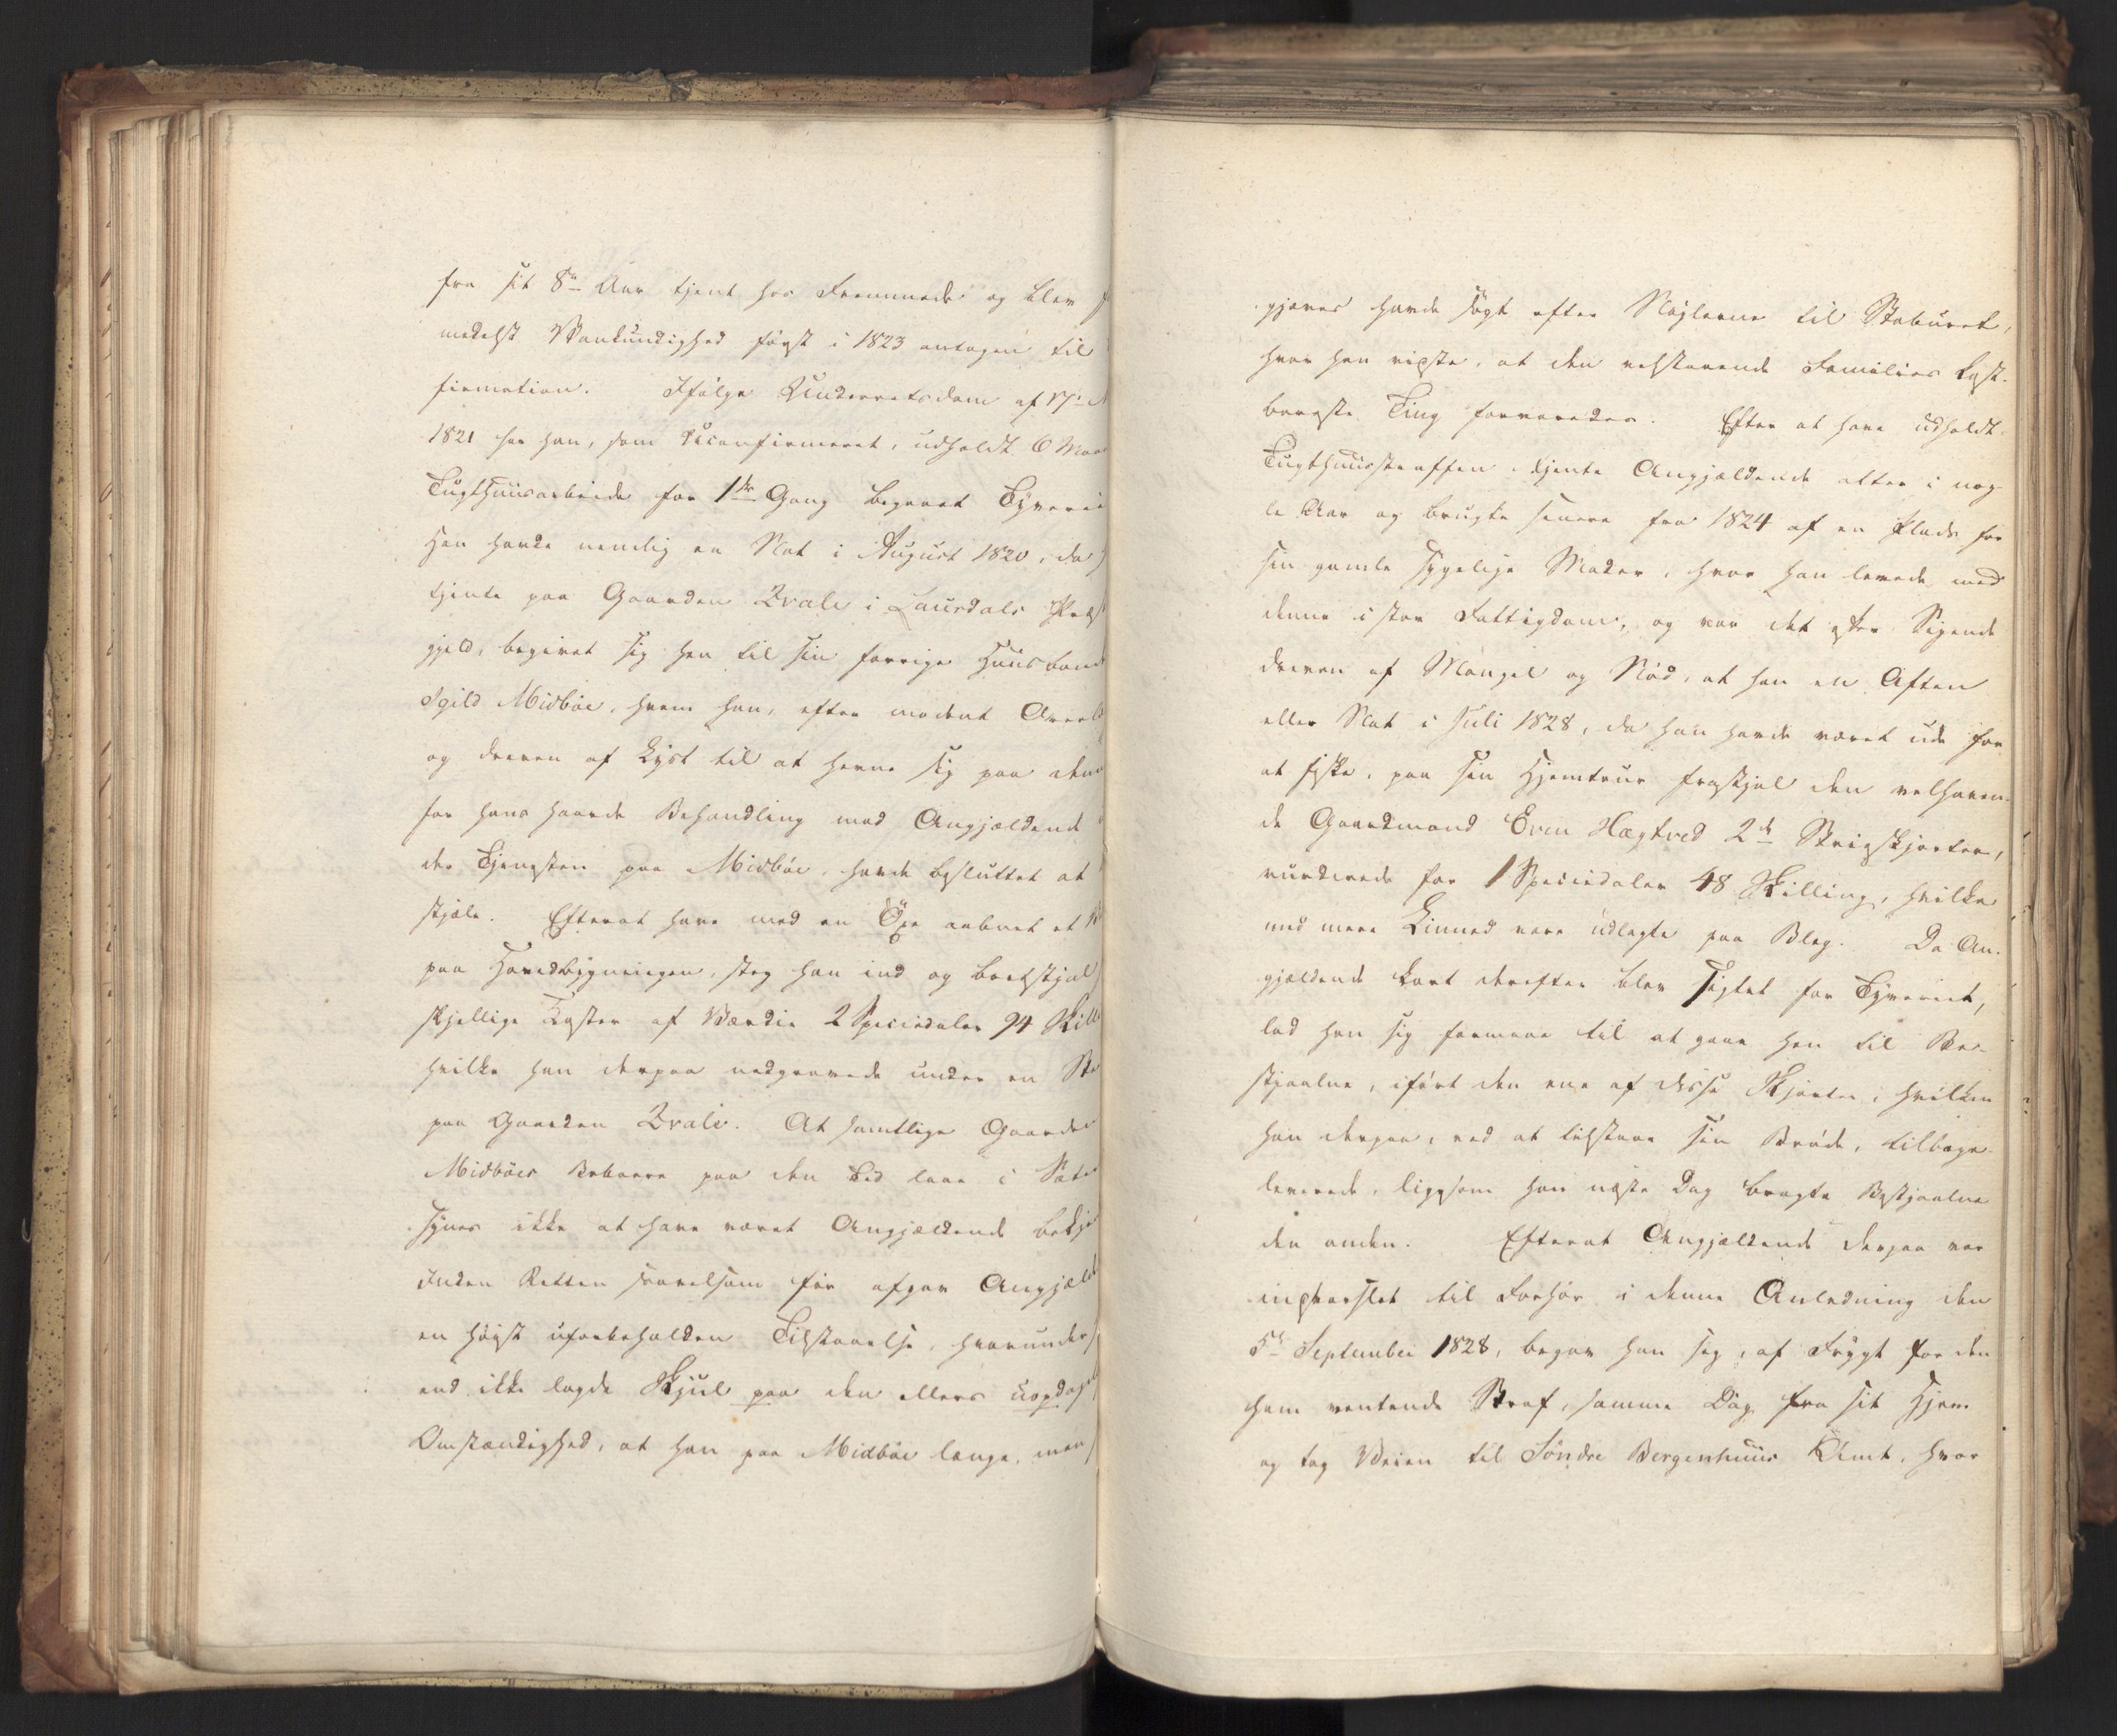 fra sit 8de Aar tjent hos Fremmede og blev
medelst Vankundighed først i 1823 antagen til
firmation. Ifølge Underretsdom af 17de
1821 har han, som uconfirmeret, udholdt 6 Maa
Tugthuusarbeide for 1ste Gang begaaet Tyverie
Han havde nemlig en Nat i August 1820, da
tjente paa Gaarden Kvale i Laurdals Præst
gjeld, begivet sig hen til sin forrige Huusbond
Igild Midbøe, hvem han, efter modent Overlæ
og dreven af Lyst til at hevne sig paa denne
for hans haarde Behandling mod Angjældende
der Tjenesten paa Midbøe, havde besluttet at
stjæle. Efterat have med en Öxe aabnet et
paa Hovedbygningen, steg han ind og bortstjal
skjellige Koster af Værdie 2 Speciedaler 94 Skill
hvilke han derpaa nedgravede under en
paa Gaarden Kvale. At samtlige Gaarden
Midbøes Beboere paa den Tid laae i Sæter
synes ikke at have været Angjældende bekj
Inden Retten saavelsom før afgav Angjæld
en høist uforbeholden Tilstaaelse, hvorunder
end ikke lagde Skjul paa den ellers uopdag
Omstændighed, at han paa Midbøe længe, men
gjæves havde søgt efter Nøglerne til Stabuuret,
hvor han vidste, at den velstaaende Families kost-
bareste Ting forvaredes. Efter at have udholdt
Tugthuusstraffen, tjente Angjældende atter i nog-
le Aar og brugte senere fra 1824 af en Plads for
sin gamle sygelige Moder, hvor han levede med
denne i stor Fattigdom, og var det efter Sigende
dreven af Mangel og Nød, at han en Aften
eller Nat i Juli 1828, da han havde været ude for
at fiske, paa sin Hjemtour frastjal den velhaven-
de Gaardmand Even Hægtved 2de Strieskjorter,
vurderede for 1 Speciedaler 48 Skilling, hvilke
med mere Linned vare udlagte paa Bleg. Da An-
gjældende kort derefter blev sigtet for Tyveriet,
lod han sig formaae til at gaae hen til Be-
stjaalne, iført den ene af disse Skjorter, hvilken
han derpaa, ved at tilstaae sin Brøde, tilbage-
leverede, ligesom han næste Dag bragte Bestjaalne
den anden. Efterat Angjældende derpaa var
indvarslet til Forhør i denne Anledning den
5te September 1828, begav han sig, af Frygt for den
ham ventende Straf, samme Dag fra sit Hjem
og tog Veien til Söndre Bergenhuus Amt, hvor